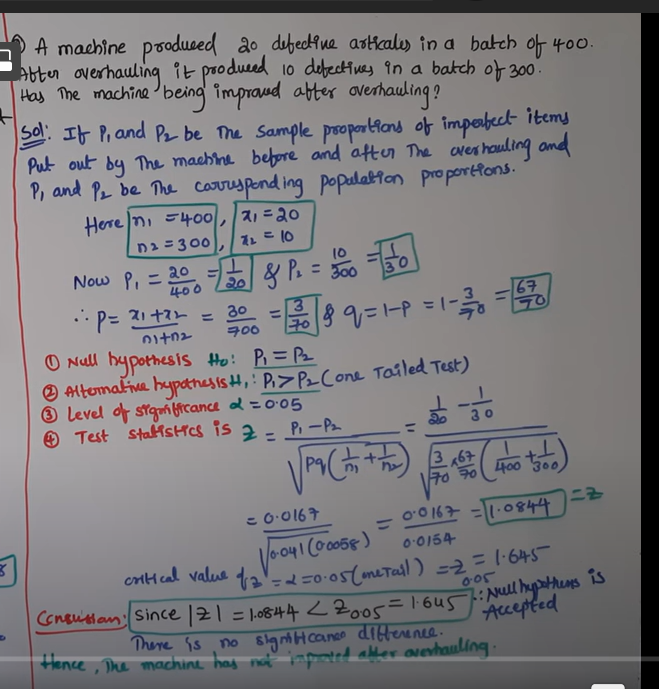 A machine produced 20 defective articales in a batch of 400.
After overhauling it produced 10 defectives in a batch of 300.
Has The machine being improved after overhauling?
Sol: If P₁ and P₂ be The sample proportions of imperfect items
Put out by The machine before and after The overhauling and
P₁ and P₂ be The corresponding population proportions.
Here n₁ = 400, x₁ = 20
n₂ = 300, x₂ = 10
Now P₁ = 20/400 = 1/20 & P₂ = 10/300 = 1/30
∴ P = (x₁+x₂)/(n₁+n₂) = 30/700 = 3/70 & q = 1-P = 1 - 3/70 = 67/70
① Null hypothesis H₀: P₁ = P₂
② Alternative hypothesis H₁: P₁ > P₂ (one Tailed Test)
③ Level of significance α = 0.05
④ Test statistics is Z = (P₁-P₂)/√(Pq(1/n₁ + 1/n₂)) = (1/20 - 1/30)/√(3/70 × 67/70 (1/400 + 1/300))
= 0.0167/√(0.041(0.0058)) = 0.0167/0.0154 = 1.0844 = Z
critical value of Z = α = 0.05 (one Tail) = Z 0.05 = 1.645
Conclusion: Since |Z| = 1.0844 < Z0.05 = 1.645 ∴ Null hypothesis is Accepted
There is no significance difference.
Hence, The machine has not improved after overhauling.